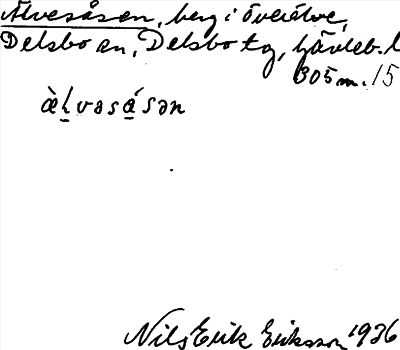 Älvesåsen, berg i Överälve,
Delsbo sn, Delsbo tg, Gävleb. l
305 m. 15
æ̀lvəsǻsən
Nils Erik Eriksson 1936